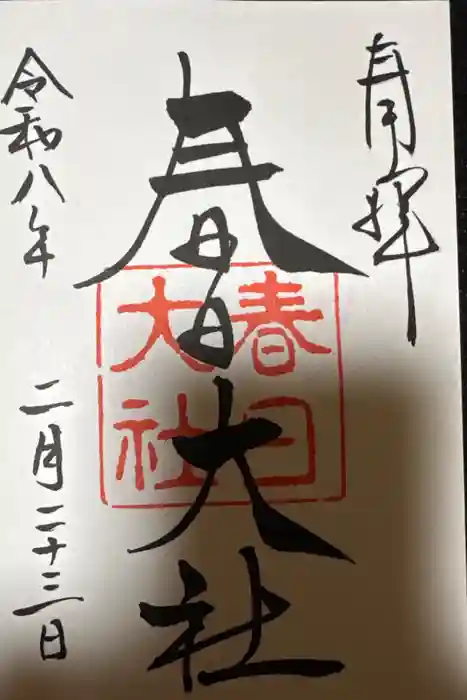 奉拝
春日大社
春日
大社
令和八年 二月二十三日